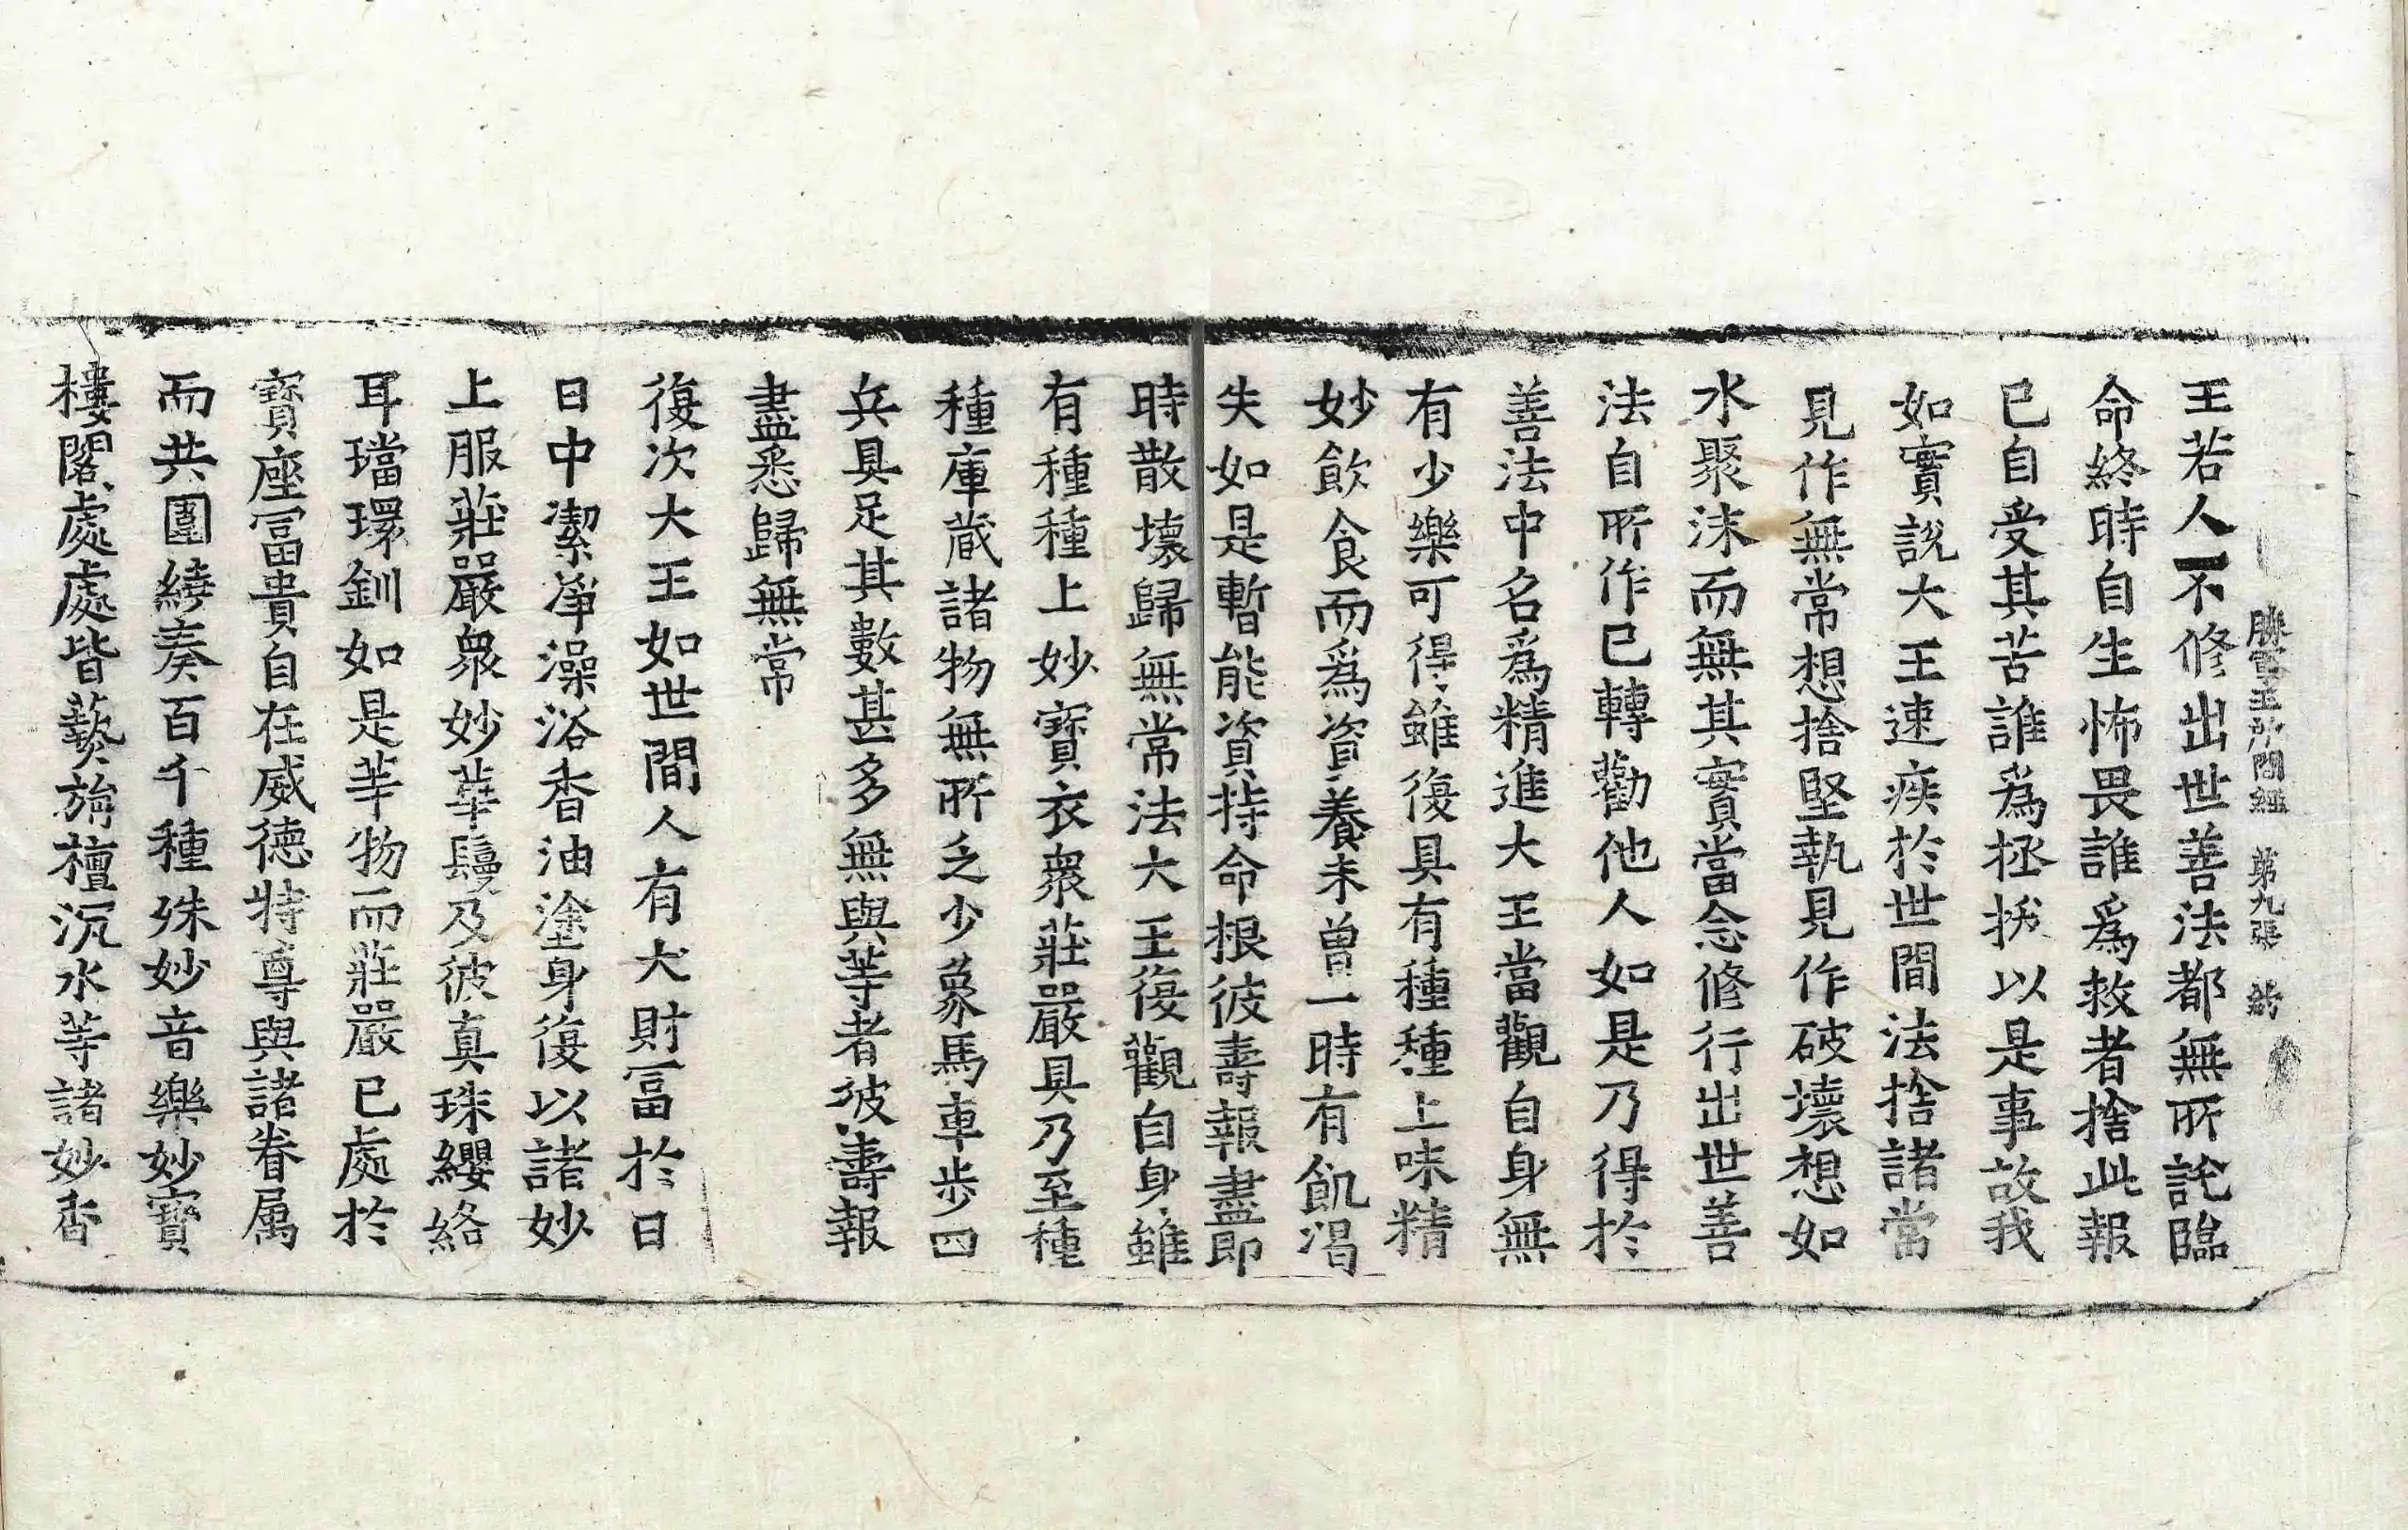 勝軍王所問經 第九張
王若人不修出世善法都無所訖臨
命終時自生怖畏誰爲救者捨此報
已自受其苦誰爲拯拔以是事故我
如實說大王速疾於世間法捨諸常
見作無常想捨堅執見作破壞想如
水聚沫而無其實當念修行出世善
法自所作已轉勸他人如是乃得於
善法中名爲精進大王當觀自身無
有少樂可得雖復具有種種上味精
妙飲食而爲資養未曾一時有飢渴
失如是暫能資持命根彼壽報盡即
時散壞歸無常法大王復觀自身雖
有種種上妙寶衣衆莊嚴具乃至種
種庫蔵諸物無所乏少象馬車步四
兵具足其數甚多無與等者彼壽報
盡悉歸無常
復次大王如世間人有大財冨於日
日中潔淨澡浴香油塗身復以諸妙
上服莊嚴衆妙華鬘及彼真珠纓絡
耳璫環釧如是等物而莊嚴已處於
寶座冨貴自在威德特尊與諸眷属
而共圍繞奏百千種殊妙音樂妙寶
樓閣處處皆爇旃檀沉水等諸妙香